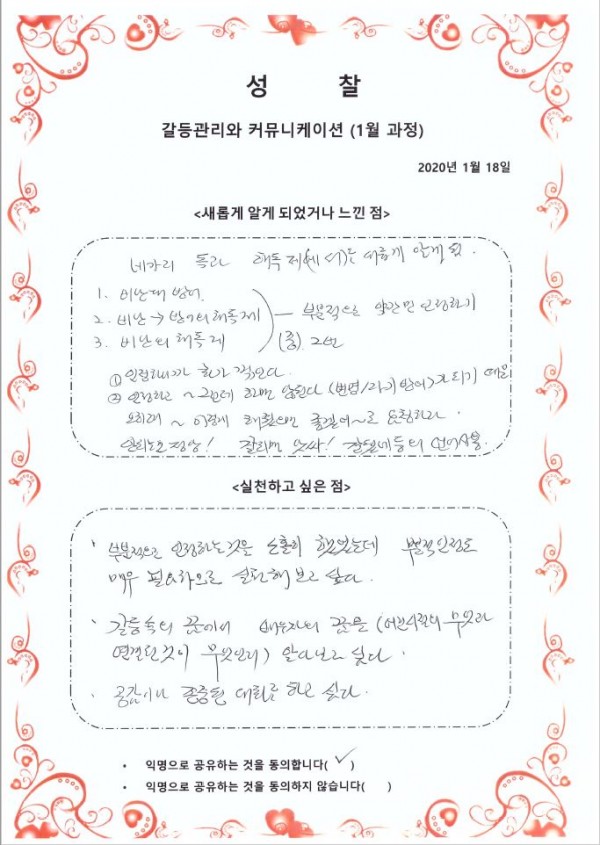 성 찰
갈등관리와 커뮤니케이션 (1월 과정)
2020년 1월 18일
<새롭게 알게 되었거나 느낀 점>
네가지 독과 해독제( )는 새롭게 알게 됨.
1. 비난대 방어.
2. 비난 → 방어의 해독제
3. 비난의 해독제
부분적으로 약간만 인정하기
(중). 2번
① 인정하니까 화가 적어진다.
② 인정하고 ~ 그런데 하면 안된다 (변명/자기방어)가 되기 때문
오히려 ~ 이렇게 해줬으면 좋겠어~로 요청하라.
정상!
<실천하고 싶은 점>
· 부분적으로 인정하는 것은 소홀히 했었는데 부분적 인정도
매우 필요하므로 실천해 보고 싶다.
· 갈등속의 꿈에서 배우자의 꿈을 (어린시절의 무엇과
연결된 것이 무엇인지) 알아보고 싶다.
· 공감이나 존중된 대화를 하고 싶다.
• 익명으로 공유하는 것을 동의합니다( ✓ )
• 익명으로 공유하는 것을 동의하지 않습니다( )